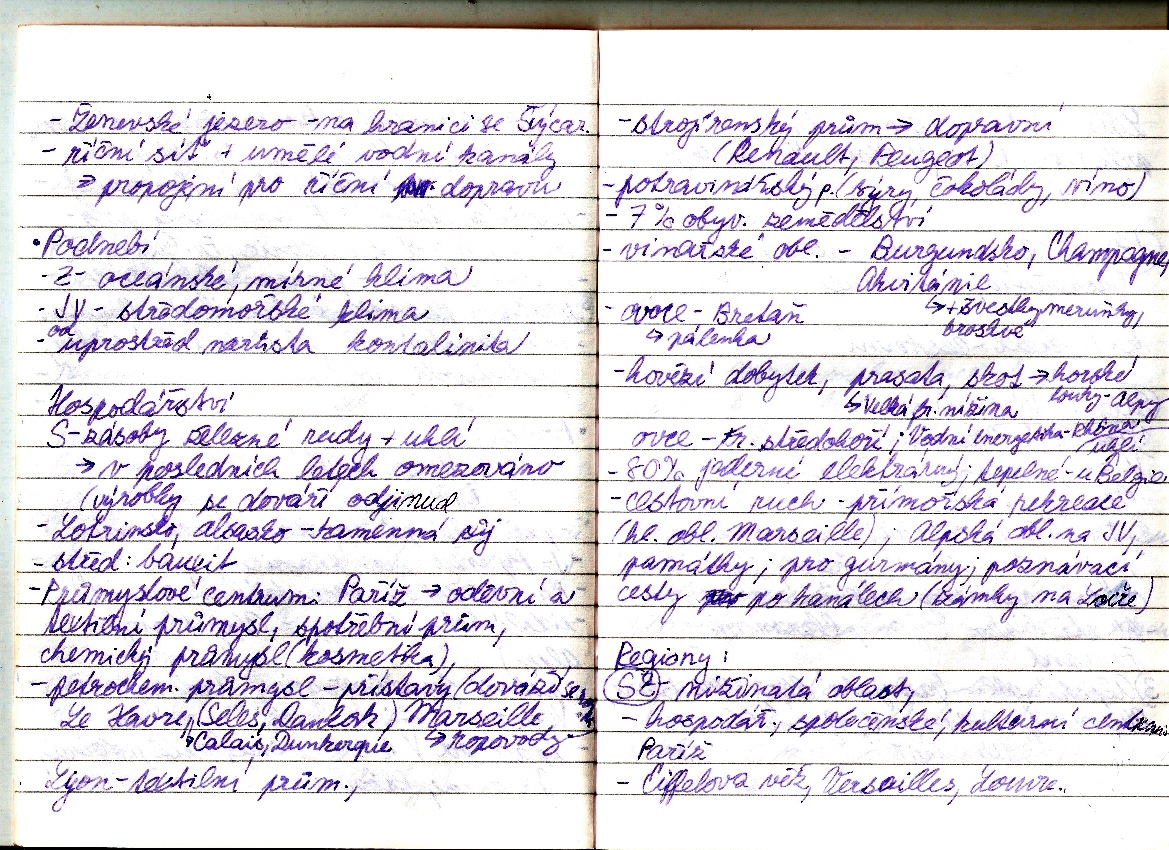 - Ženevské jezero - na hranici se Švýcar.
- říční síť + umělé vodní kanály
→ propojení pro říční dopravu
• Podnebí
- Z - oceánské, mírné klima
- JV - středomořské klima
- od uprostřed narůsta kontalinita
Hospodářství
S - zásoby železné rudy + uhlí
→ v posledních letech omezováno
(výrobky se dováží odjinud
- Lotrinsko, Alsasko - kamenná sůj
- střed: bauxit
- Průmyslové centrum: Paříž → oděvní a
textilní průmysl, spotřební prům,
chemický průmysl (kosmetika),
- petrochem. průmysl - přístavy (dováží se
Le Havre, (Seles, Dankok) Marseille
Calais, Dunkerque → ropovody
Lyon - textilní prům.,
- strojírenský prům → dopravní
(Renault, Peugeot)
- potravinářský p. (sýry, čokolády, víno)
- 7% obyv. zemědělství
- vinařské obl. - Burgundsko, Champagne,
Akvitánie
- ovoce - Bretaň → + švestky, meruňky,
→ pálenka broskve
- hovězí dobytek, prasata, skot → horské
→ Velká fr. nížina louky - Alpy
ovce - Fr. středohoří; Vodní energetika - Rhôna
uhlí
- 80% jaderné elektrárny; tepelné - u Belgie
- cestovní ruch - přímořská rekreace
(hl. obl. Marseille); Alpská obl. na JV,
památky; pro gurmány; poznávací
cesty po kanálech (zámky na Loiře)
Regiony:
SZ nížinatá oblast,
- hospodář., společenské, kulturní centrum
Paříž
- Eiffelova věž, Versailles, Louvr..